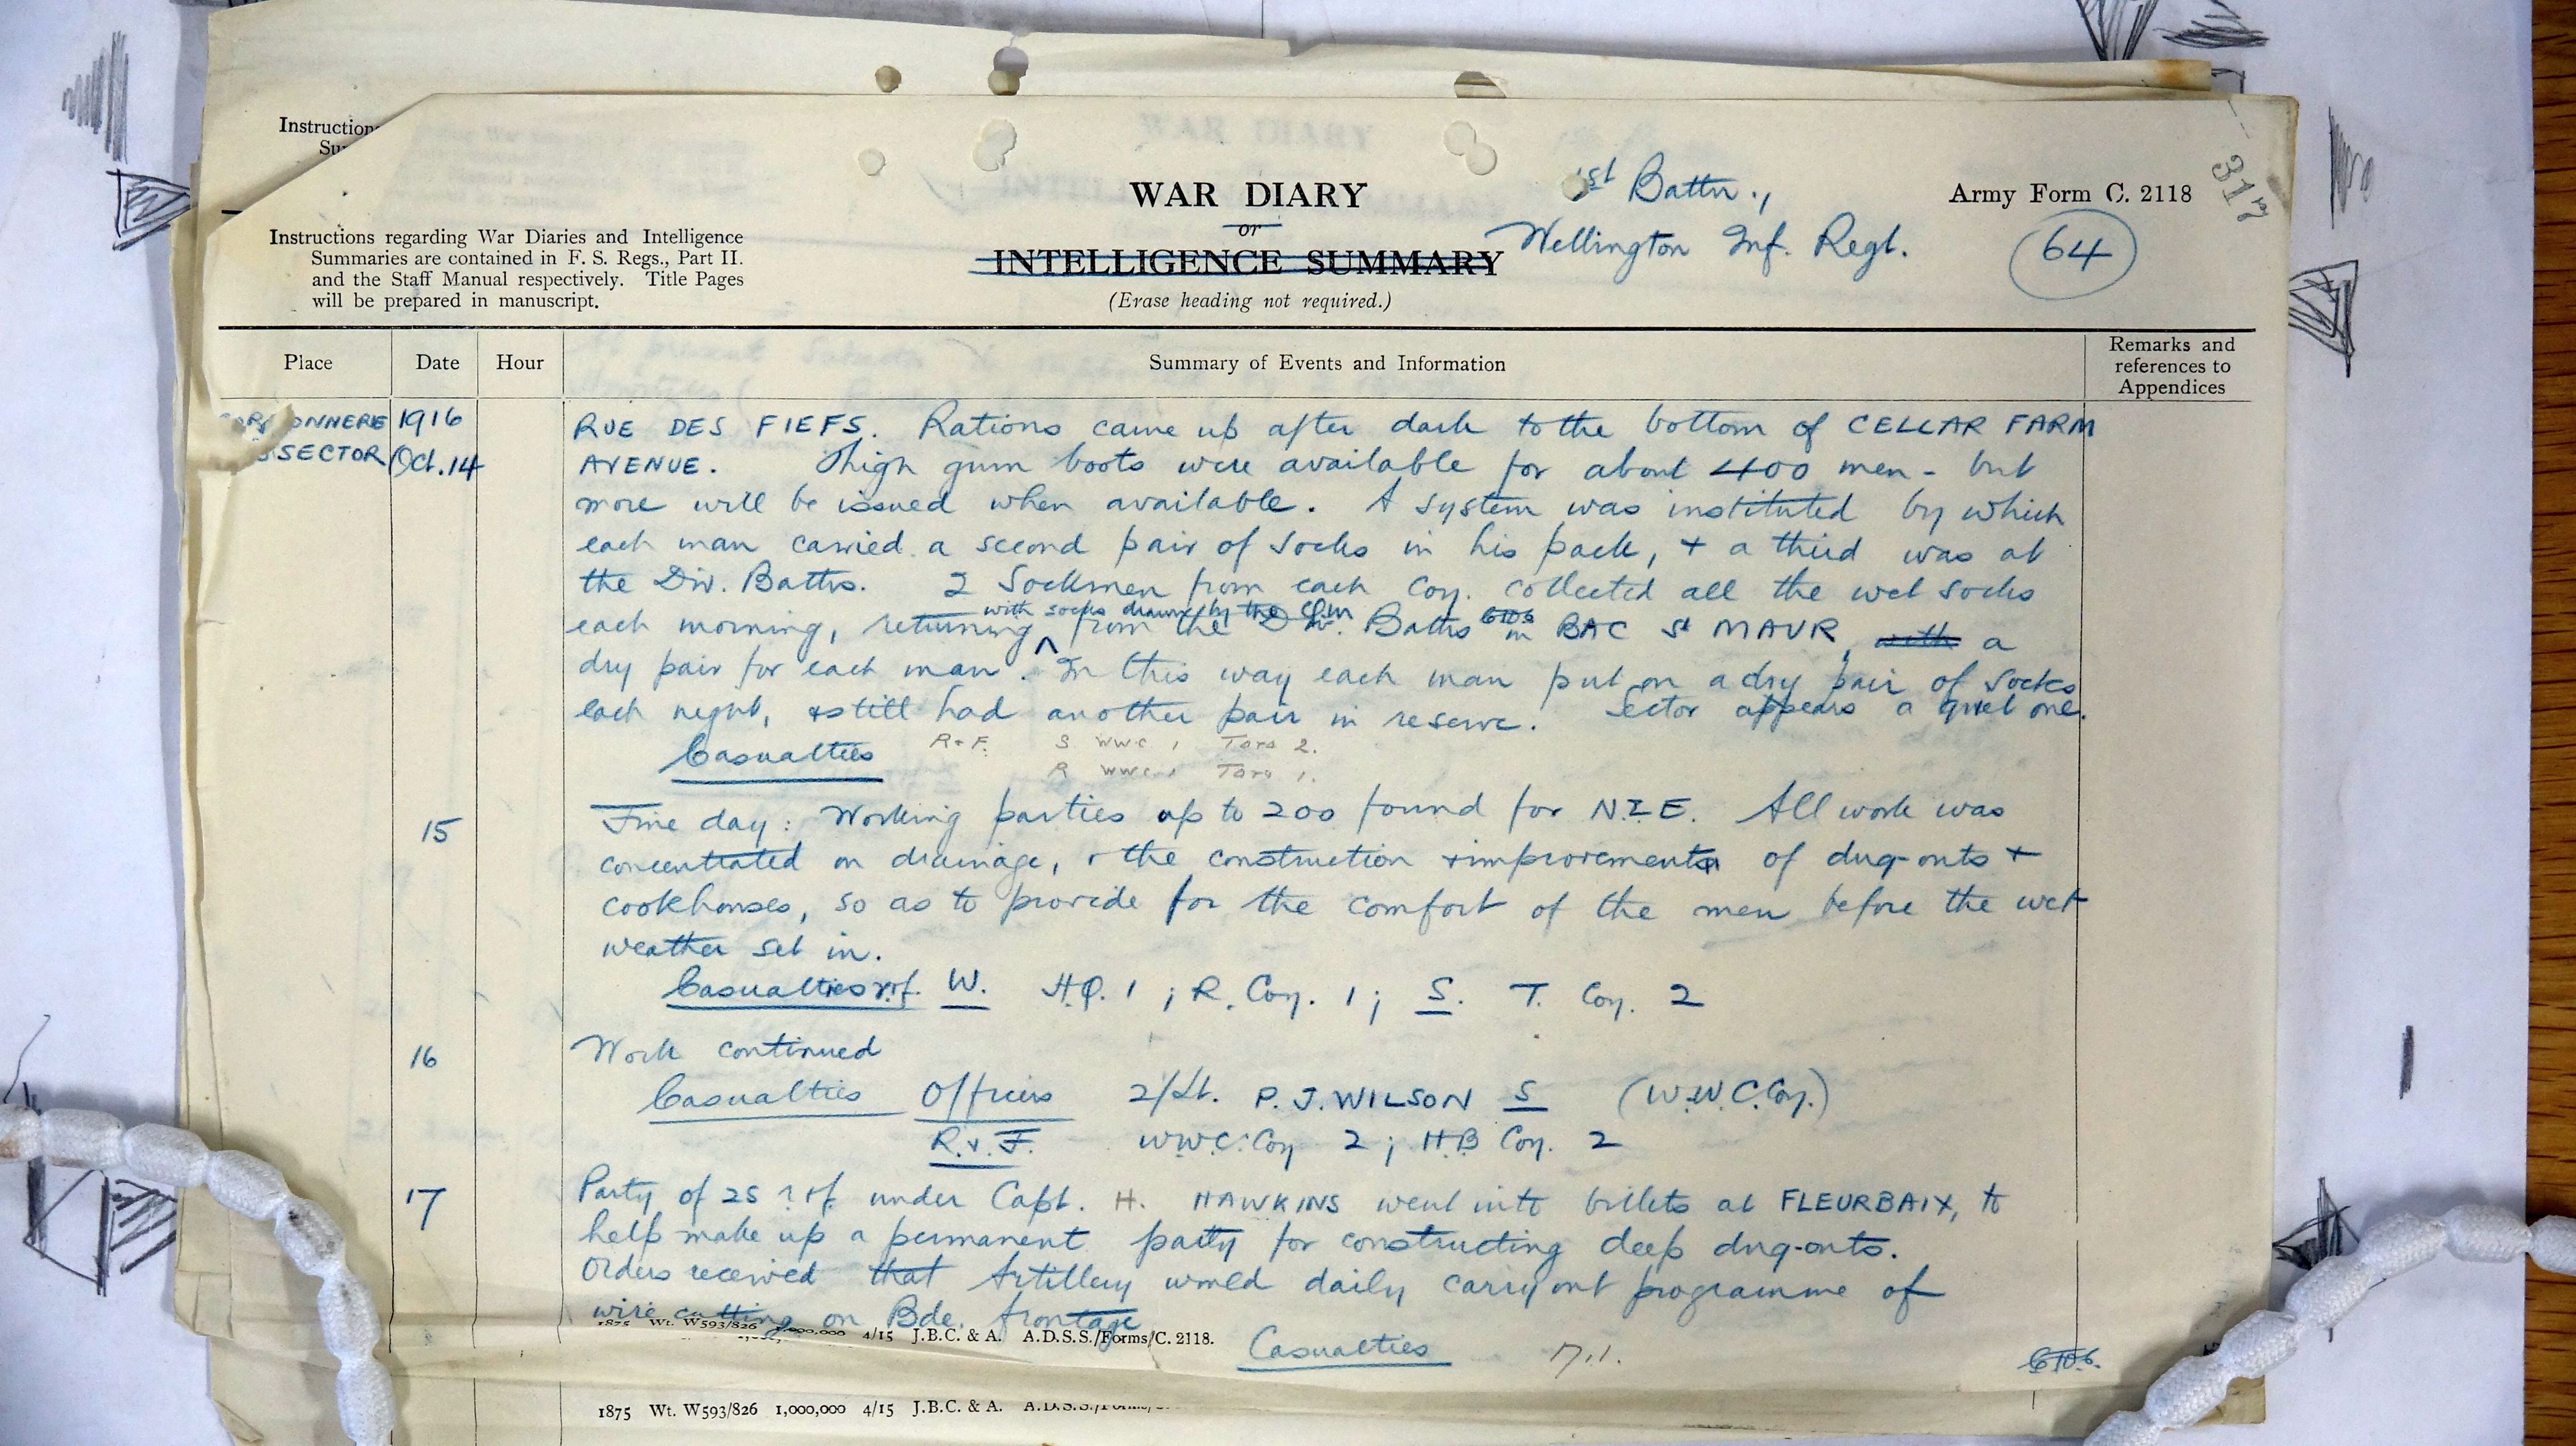 Instruction
Su
WAR DIARY
or
INTELLIGENCE SUMMARY
(Erase heading not required.)
1st Battn.,
Wellington Inf. Regt.
Army Form C. 2118
317
64
Instructions regarding War Diaries and Intelligence
Summaries are contained in F. S. Regs., Part II.
and the Staff Manual respectively. Title Pages
will be prepared in manuscript.
Place Date Hour Summary of Events and Information Remarks and references to Appendices
ONNERE 1916 RUE DES FIEFS. Rations came up after dark to the bottom of CELLAR FARM
SECTOR Oct. 14 AVENUE. Thigh gum boots were available for about 400 men - but
more will be issued when available. A system was instituted by which
each man carried a second pair of socks in his pack, + a third was at
the Div. Baths. 2 Sockmen from each Coy. collected all the wet socks
with socks drawn by the
each morning, returning from the Div. Baths in BAC St MAUR, with a
dry pair for each man. In this way each man put on a dry pair of socks
each night, + still had another pair in reserve. Sector appears a quiet one.
Casualties R + F. S WWC 1 Tara 2.
R WWC 1 Tara 1.
15 Fine day: Working parties up to 200 found for N.Z.E. All work was
concentrated on drainage, + the construction + improvements of dug-outs +
cookhouses, so as to provide for the comfort of the men before the wet
weather set in.
Casualties r.+f. W. H.Q. 1 ; R. Coy. 1 ; S. T. Coy. 2
16 Work continued
Casualties Officers 2/Lt. P. J. WILSON S (W.W.C. Coy.)
R. + F. W.W.C. Coy 2 ; H.B Coy. 2
17 Party of 25 r + f. under Capt. H. HAWKINS went into billets at FLEURBAIX, to
help make up a permanent party for constructing deep dug-outs.
Orders received that Artillery would daily carry out programme of
wire cutting on Bde. frontage
1875 Wt. W593/826 1,000,000 4/15 J.B.C. & A. A.D.S.S./Forms/C. 2118.
Casualties Nil.
1875 Wt. W593/826 1,000,000 4/15 J.B.C. & A.